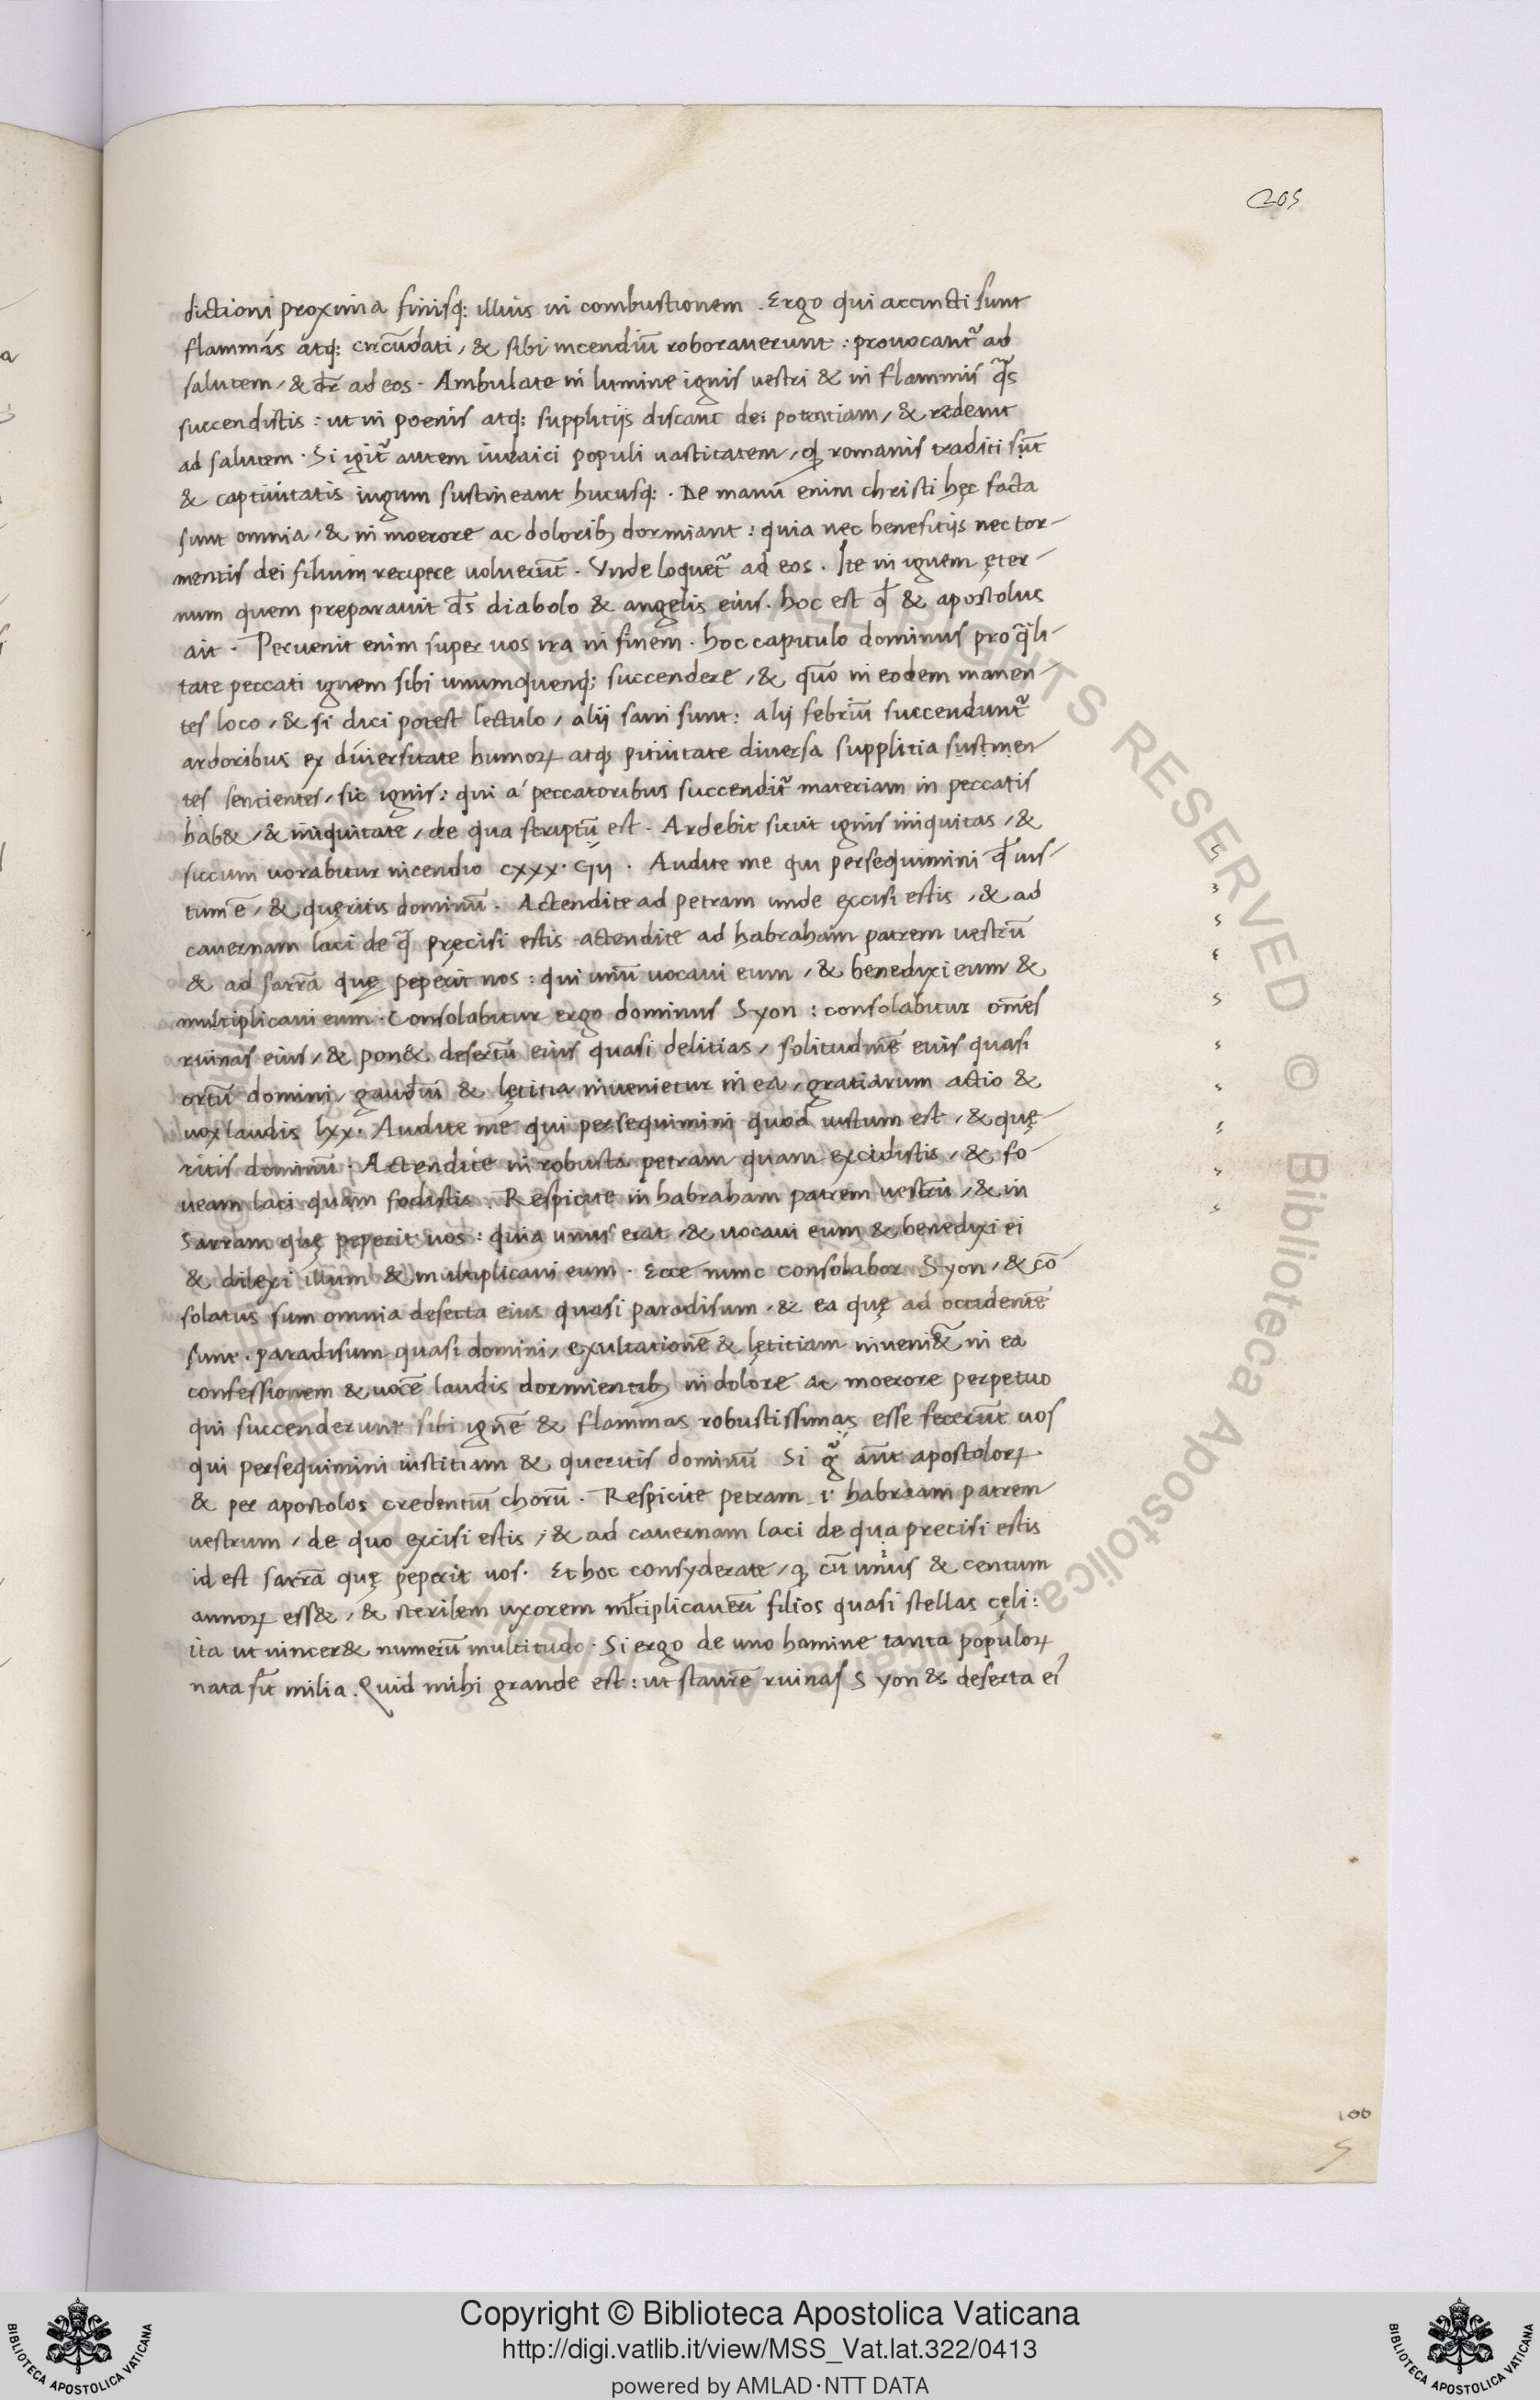 205
dictioni proxima finisq; illius in combustionem . Ergo qui accincti sunt
flammás átq; circũdati, & sibi incendiũ roborauerunt : prouocant᷑ ad
salutem, & dr̃ ad eos . Ambulate in lumine ignis uestri & in flammis q̃s
succendistis : ut in poenis atq; supplitijs discant dei potentiam, & redeant
ad salutem . Si igit᷑ autem iudaici populi uastitatem, romanis traditi sũt
& captiuitatis iugum sustineant hucusq; . De manu enim christi hęc facta
sunt omnia, & in moerore ac dolorib; dormiant : quia nec benefitijs nec tor-
mentis dei filium recipere uoluerũt . Vnde loquet᷑ ad eos . Ite in ignem ęter-
num quem preparauit ds̃ diabolo & angelis eius . hoc est & apostolus
ait . Peruenit enim super uos ira in finem . hoc capitulo dominus pro q̃li-
tate peccati ignem sibi unumquenq; succendere, & quõ in eodem manen-
tes loco, & si dici potest lectulo, alij sani sunt : alij febriũ succendunt᷑
ardoribus ex diuersitate humoꝝ atq; pituitate diuersa supplitia sustinen
tes sentientes, sic ignis : qui á peccatoribus succendit᷑ materiam in peccatis
hab&, & iniquitate, de qua scriptũ est . Ardebit sicut ignis iniquitas, &
siccum uorabitur incendio cxxx . Audite me qui persequimini ius-
tum ẽ, & quęritis dominũ . Actendite ad petram unde excisi estis, & ad
cauernam laci de q̃ pręcisi estis actendite ad habraham patrem uestrũ
& ad sarrã quę peperit uos : qui unũ uocaui eum, & benedixi eum &
multiplicaui eum . Consolabitur ergo dominus Syon : consolabitur om̃es
ruinas eius, & pon& desertũ eius quasi delitias, solitudinẽ eius quasi
ortũ domini, gaudiũ & lętitia inuenietur in ea, gratiarum actio &
uox laudis lxx . Audite me qui persequimini quod iustum est, & quę-
ritis dominũ . Actendite in robusta petram quam excidistis, & fo-
ueam laci quam fodistis . Respicite in habraham patrem uestrũ, & in
Sarram quę peperit uos : quia unus erat, & uocaui eum & benedixi ei
& dilexi illum & multiplicaui eum . Ecce nunc consolabor Syon, & cõ
solatus sum omnia deserta eius quasi paradisum, & ea quę ad occidentẽ
sunt . paradisum quasi domini, exultationẽ & lętitiam inueni& in ea
confessionem & uocẽ laudis dormientib; in dolore ac moerore perpetuo
qui succenderunt sibi ignẽ & flammas robustissimas esse fecerũt uos
qui persequimini iustitiam & queritis dominũ Si aũt apostoloꝝ
& per apostolos credentiũ chorũ . Respicite petram .i. habraam patrem
uestrum, de quo excisi estis, & ad cauernam laci de qua precisi estis
id est sarrã quę peperit uos . Et hoc consyderate, cũ unius & centum
annoꝝ ess&, & sterilem uxorem ml̃tiplicauerũ filios quasi stellas cęli :
ita ut uincer& numerũ multitudo . Si ergo de uno homine tanta populoꝝ
nata sũt milia . Quid mihi grande est : ut staurẽ ruinas Syon & deserta ei᾽
100
Copyright © Biblioteca Apostolica Vaticana
http://digi.vatlib.it/view/MSS_Vat.lat.322/0413
powered by AMLAD·NTT DATA